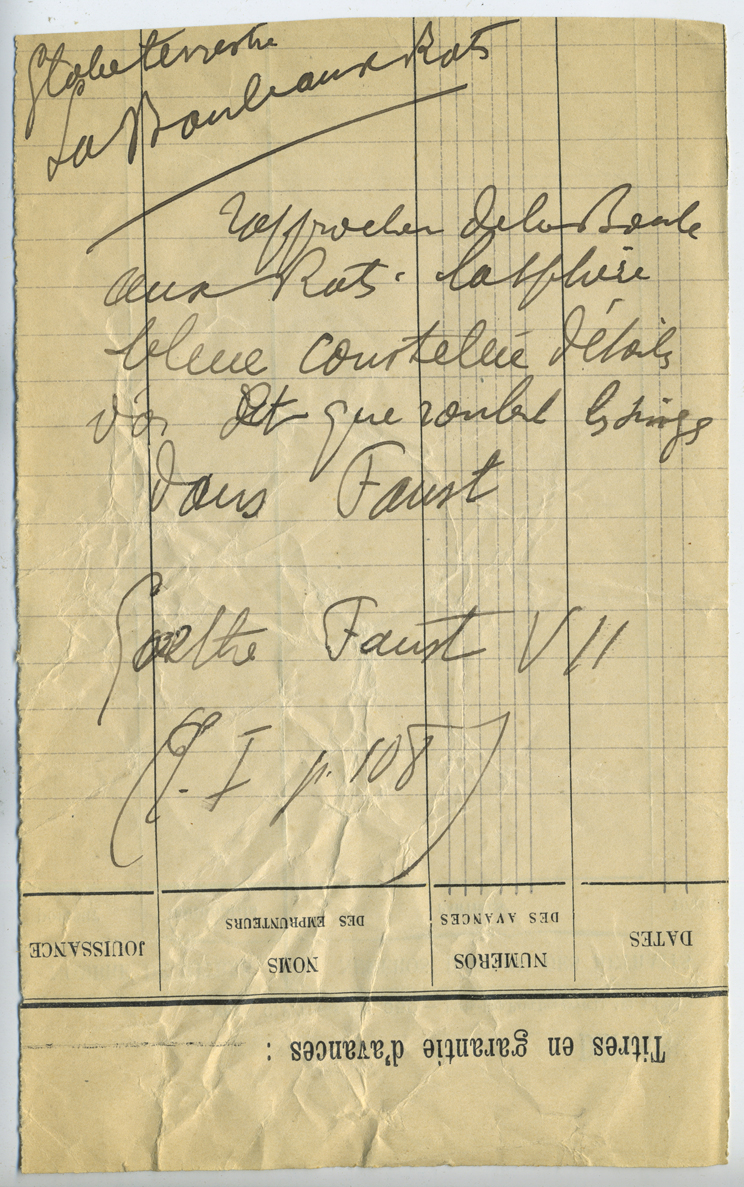 Globe terrestre
La Boule aux Rats
rapprocher de la Boule
aux Rats. la sphère
bleue constellée détoiles
d'or et que roulent les singes
dans Faust
Goethe Faust VII
(T. I p. 108)
JOUISSANCE
NOMS
DES EMPRUNTEURS
NUMÉROS
DES AVANCES
DATES
Titres en garantie d'avances :